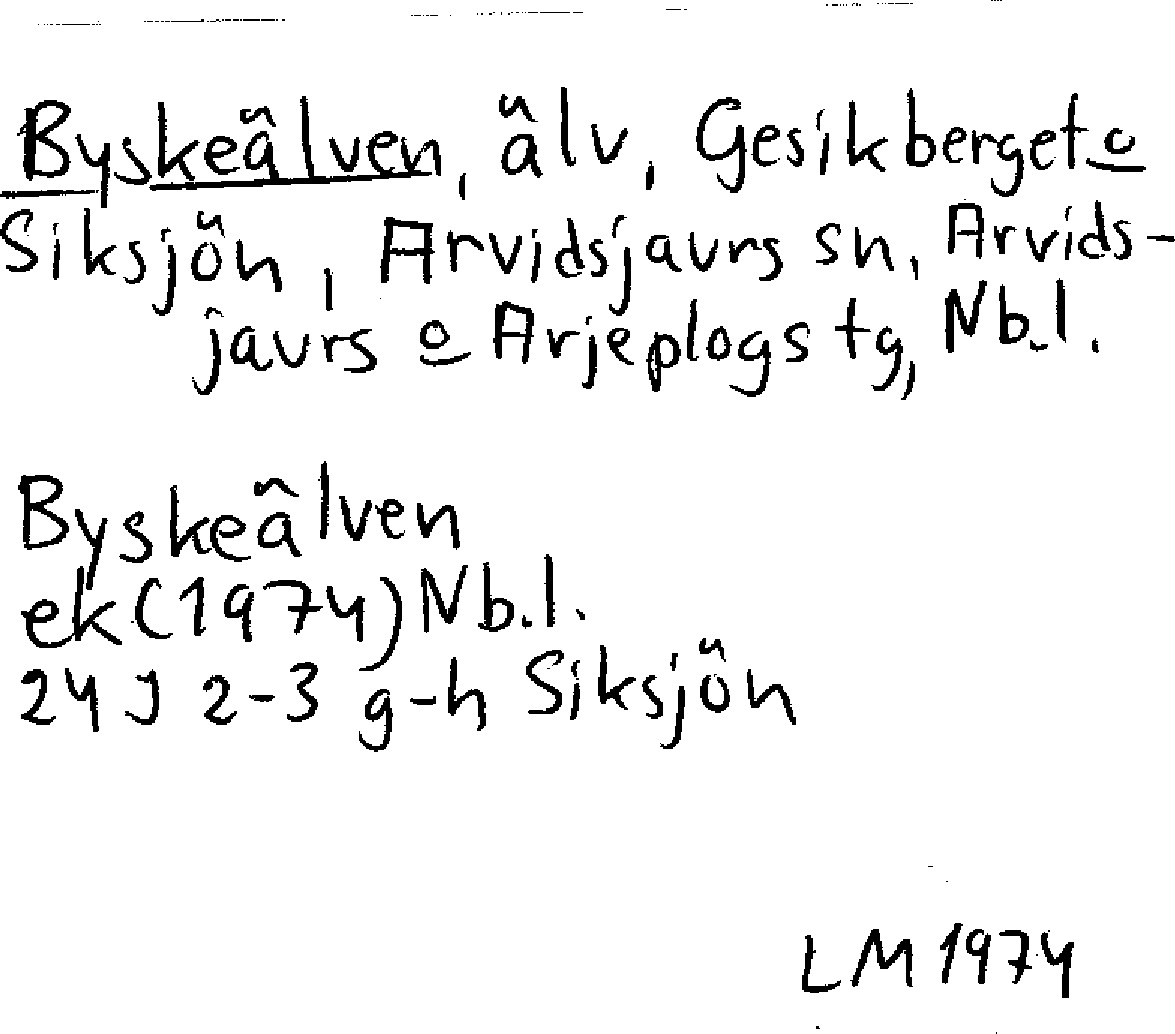 Byskeälven, älv, Gesikberget o
Siksjön, Arvidsjaurs sn, Arvids-
jaurs o Arjeplogs tg, Nb.l.
Byskeälven
ek(1974)Nb.l.
24 J 2-3 g-h Siksjön
LM 1974